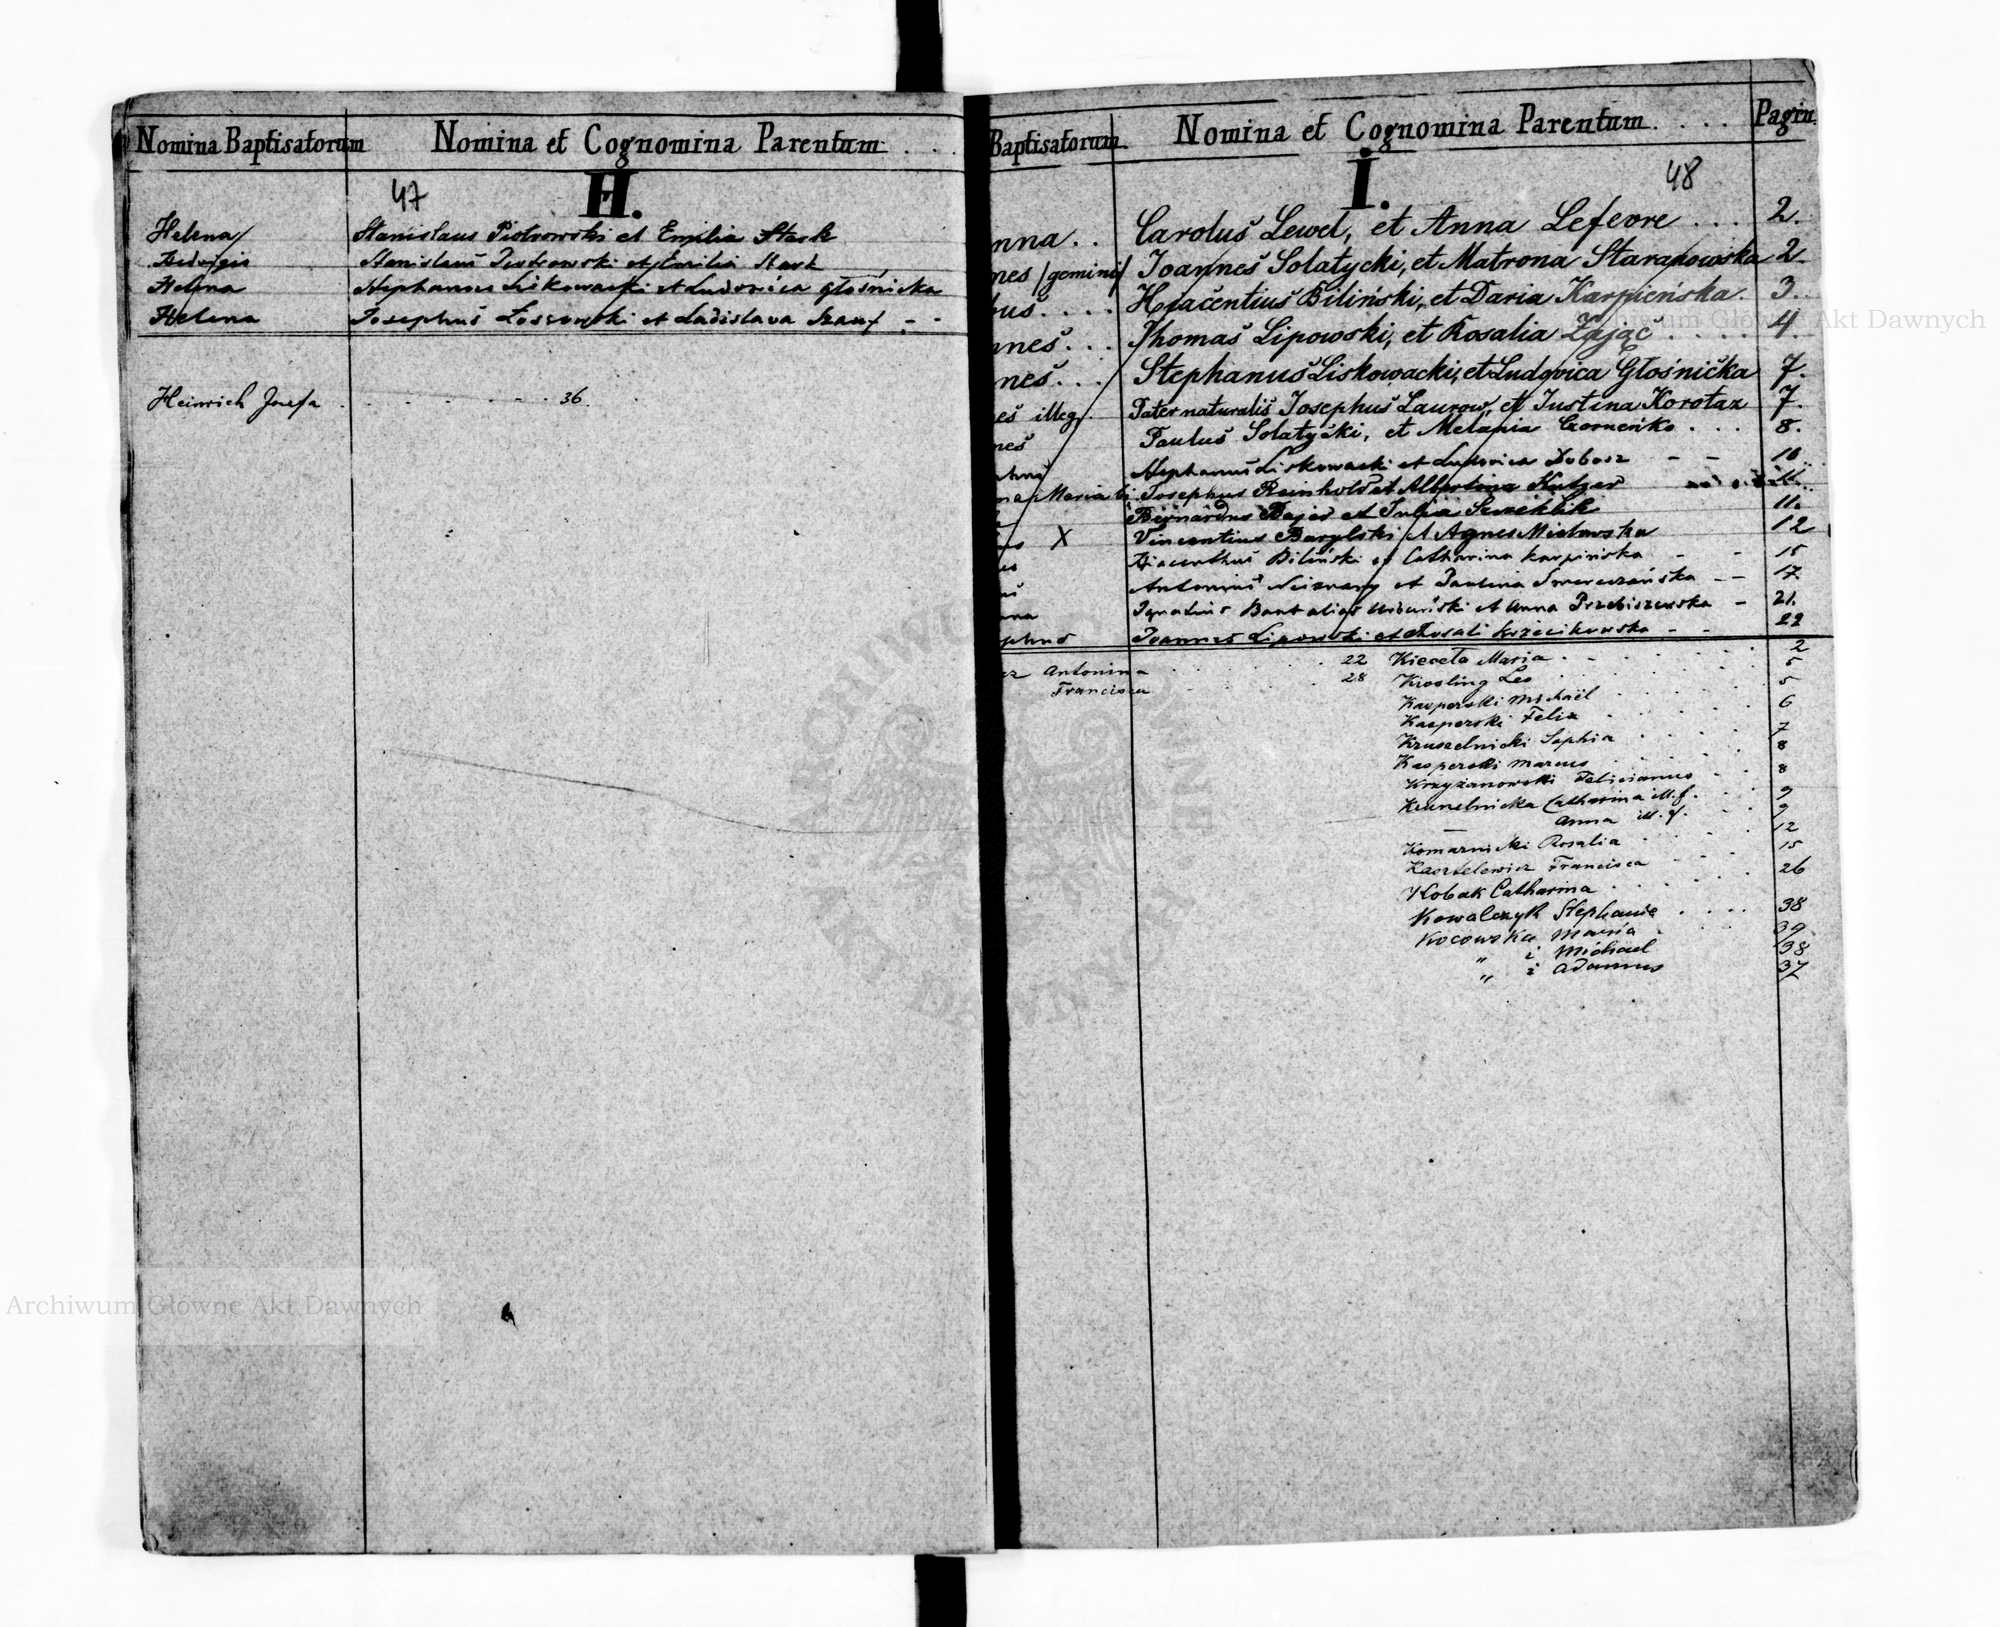 Nomina Baptisatorum Nomina et Cognomina Parentum . . .
47 H.
Helena Stanislaus Piotrowski et Emilia Stark
Hedvigis Stanislaus Piotrowski et Emilia Stark
Helena Stephanus Liskowacki et Ludovica Głośnicka
Helena Josephus Łossowski et Ladislava Szauf - -
Heinrich Josefa . . . . . . 36.
Baptisatorum Nomina et Cognomina Parentum . . . . Pagin.
I. 48
nna . . Carolus Lewel, et Anna Lefevre . . . 2.
nes /gemini/ Joannes Solatycki, et Matrona Starapowska 2
bus . . . . Hyacentius Biliński, et Daria Karpieńska. 3.
nnes . . . Thomas Lipowski, et Rosalia Zając . . . . 4.
nes . . . Stephanus Liskowacki, et Ludovica Głośnička 7.
es illeg. Pater naturalis Josephus Laurow, et Justina Korotaz 7.
nes Paulus Solatycki, et Melania . . . 8.
Stephanus Liskowacki et Ludovica Dobosz - - 10
Maria Josephus Reinhold et Albertona Kutzer 11.
Bernardus Bajer et Julia 11.
X Vincentius Barylski et Agnes Misłowska 12
Hiacenthus Biliński et Catharina Karpińska - - 15
Antonius et Paulina - - 17.
Ignatius et Anna Przebiszewska - 21.
Joannes Lipowski et Rosali - - 22
Antonina . . . . 22
Francisca . . . . 28
Kieceta Maria . . . . 2
Kiosling Leo . . . . 5
Kasperski Michaël . . . . 5
Kasperski Felix . . . . 6
Kruszelnicki Sophia . . . . 7
Kasperski Marcus . . . . 8
Krzyżanowski Felicianus . . 8
Catharina M. f. . . 9
Anna M. f. . . 9
Komarnicki Rosalia . . . 12
Francisca . . . 15
Kobak Catharina . . . . 26
Kowalczyk Stephania . . . . 38
Kocowska Maria . . . 39.
" i Michael 38
" i Adamus 37
Archiwum Główne Akt Dawnych
Archiwum Główne Akt Dawnych